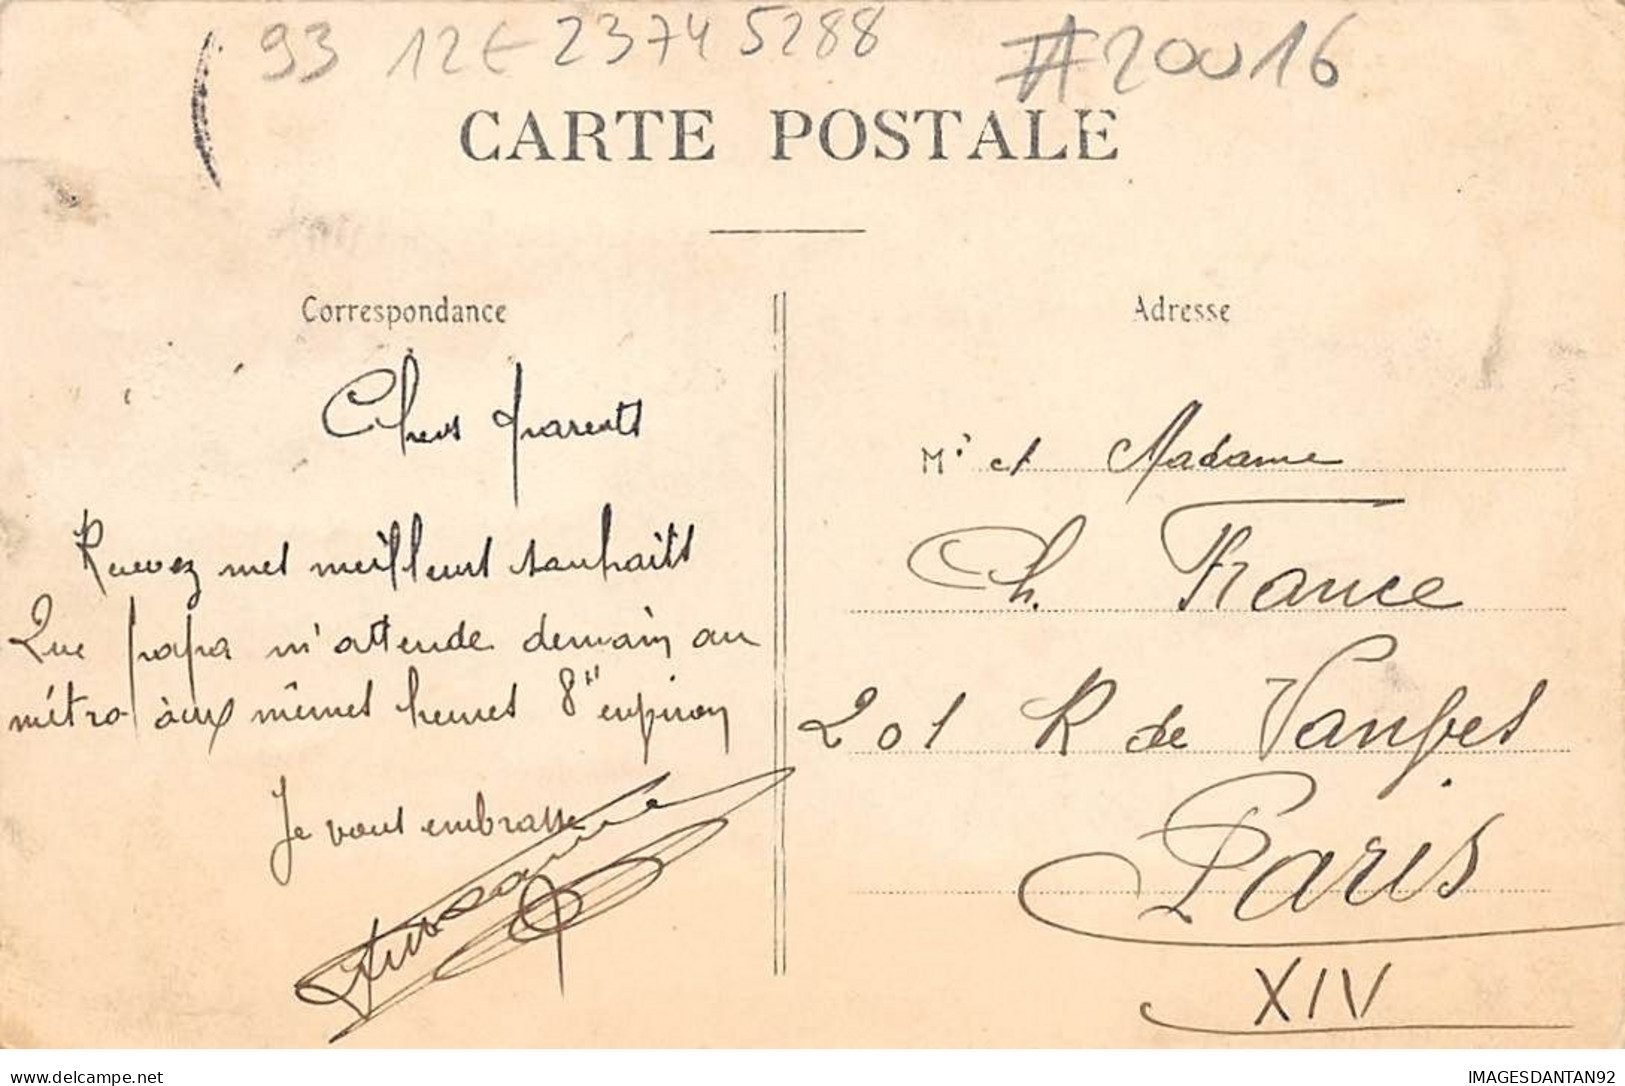 93 12E 2374 5288 #20016
CARTE POSTALE
Correspondance
Chers parents
Recevez mes meilleurs souhaits
Que papa m'attende demain au
métro aux mêmes heures 8" environ
Je vous embrasse
Adresse
Mr et Madame
Ch. France
201 R de Vanves
Paris
XIV
delcampe.net
IMAGESDANTAN92